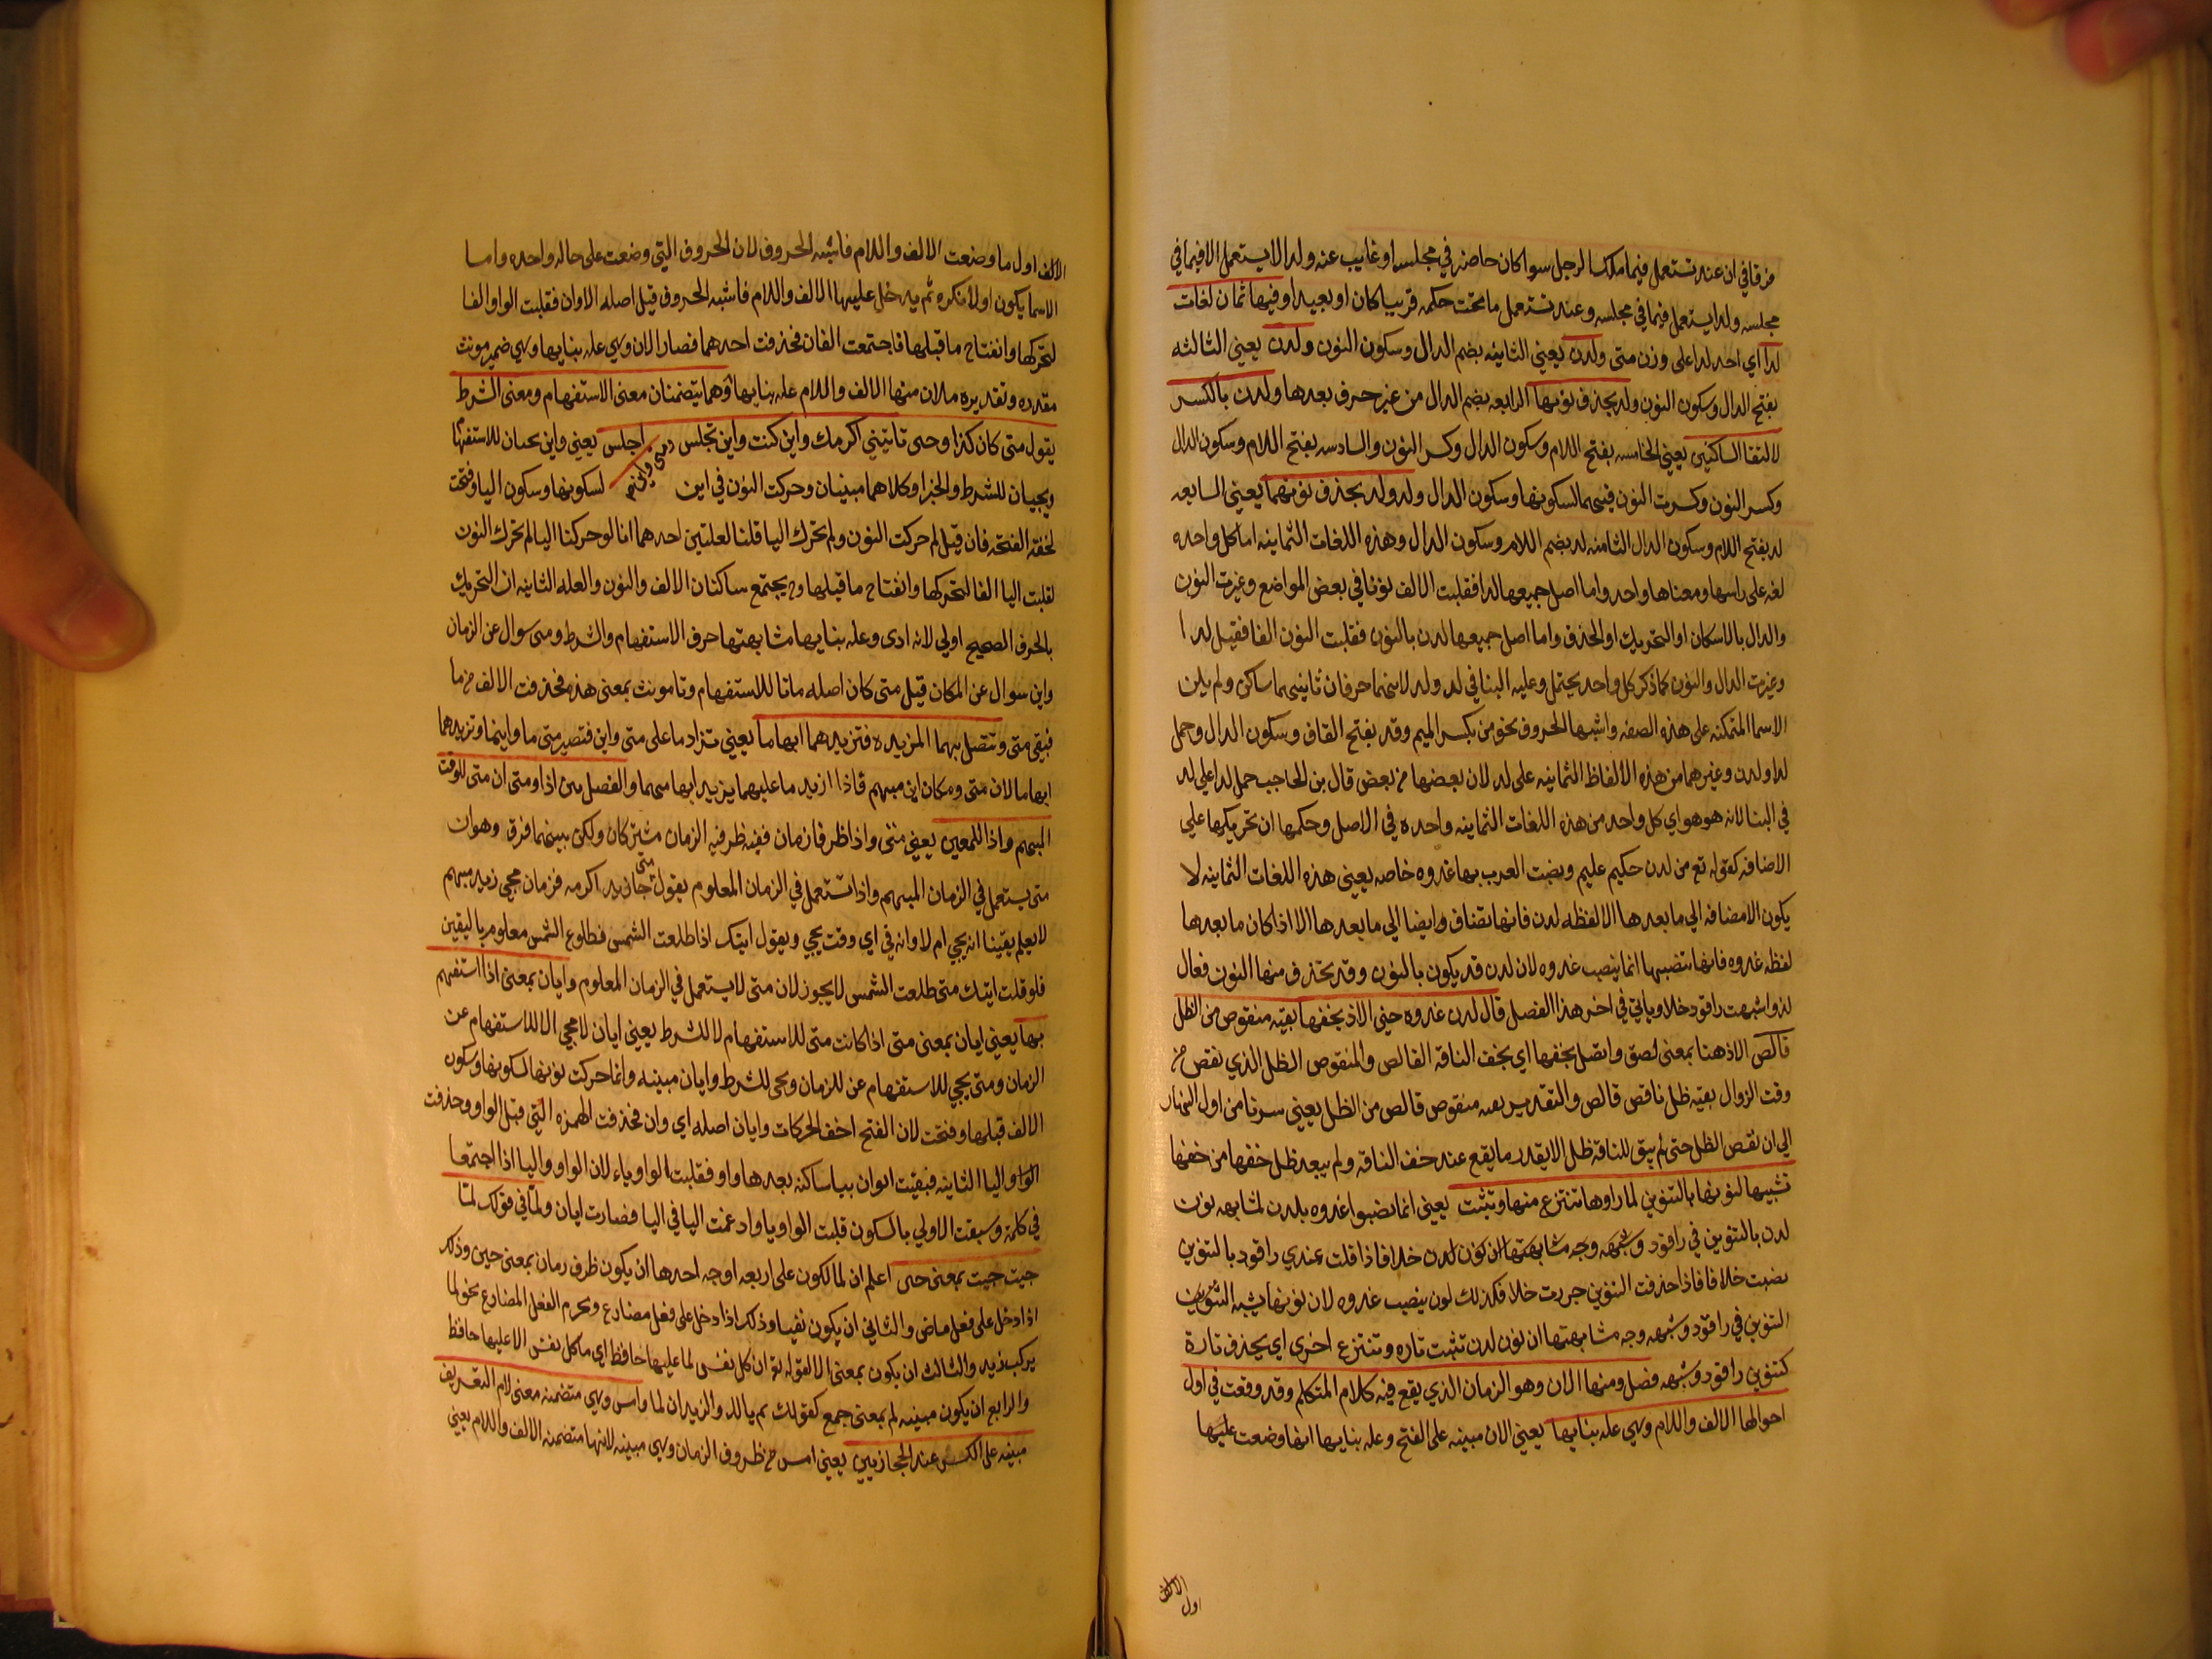 فرقا في ان عند تستعمل فيما ملكه الرجل سوا كان حاضر في مجلسه او غايب عنه ولدا لا يستعمل الا فيما في
مجلسه ولدا يستعمل فيما في مجلسه وعند تستعمل ما تحت حكمه قريبا كان او بعيدا وفيها ثمان لغات
لدا اي احد لدا على وزن متى ولدن يعني الثانيه بضم الدال وسكون النون ولدن يعني الثالثه
بفتح الدال وسكون النون ولد بحذف نونها الرابعه بضم الدال من غير حرف بعدها ولدن بالكسر
لالتقا الساكنين يعني الخامسه بفتح اللام وسكون الدال وكسر النون والسادسه بفتح اللام وسكون الدال
وكسر النون وكسرت النون فيهما لسكونها وسكون الدال ولد ولد بحذف نونهما يعني السابعه
لد بفتح اللام وسكون الدال الثامنه لد بضم اللام وسكون الدال وهذه اللغات الثمانيه اما كل واحده
لغه على راسها ومعناها واحد واما اصل جميعها لدا فقلبت الالف نونا في بعض المواضع وغيرت النون
والدال بالاسكان او التحريك او الحذف واما اصل جميعها لدن بالنون فقلبت النون الفا فقيل لدا
وغيرت الدال والنون كما ذكر كل واحد يحتمل وعليه البنا في لد ولد لانهما حرفان ثانيهما ساكن ولم يكن
الاسما المتمكنه على هذه الصفه واشبها الحروف نحو من بكسر الميم وقد بفتح القاف وسكون الدال وحمل
لدا ولدن وغيرهما من هذه الالفاظ الثمانيه على لد لان بعضها من بعض قال بن الحاجب حمل لدا على لد
في البنا لانه هو هو اي كل واحد من هذه اللغات الثمانيه واحده في الاصل وحكمها ان تحريكها على
الاضافه كقوله تع من لدن حكيم عليم ونصبت العرب بها غدوه خاصه يعني هذه اللغات الثمانيه لا
يكون الامضافه الى ما بعدها الا لفظه لدن فانها تضاف وايضا الى ما بعدها الا اذا كان ما بعدها
لفظه غدوه فانها تنصبها انما ينصب غدوه لان لدن قد يكون بالنون وقد تحذف منها النون فعال
لد واشبهت راقود خلا وياتي في اخر هذا الفصل قال لدن غدوه حتى الاذ بخفها بقيه منقوص من الظل
قالص الاذ هنا بمعنى لصق واتصل بخفها اي بخف الناقه القالص والمنقوص الظل الذي نقص من
وقت الزوال بقيه ظل ناقص قالص والتقدير بقيه منقوص قالص من الظل يعني سرنا من اول النهار
الى ان نقص الظل حتى لم يبق للناقه ظل الا بقدر ما يقع عند خف الناقه ولم يبعد ظل خفها من خفها
تشبيها لنونها بالتنوين لما راوها تنتزع منها وتثبت يعني انما نصبوا غدوه بلدن لمشابهه نون
لدن بالتنوين في راقود وشبهه وجه مشابهتها ان نون لدن خلافا فاذا قلت عندي راقود بالتنوين
نصبت خلا فاذا حذفت التنوين جررت خلا فكذلك لدن ينصب غدوه لان نونها يشبه التنوين
التنوين في راقود وشبهه وجه مشابهتها ان نون لدن تثبت تاره وتنتزع اخرى اي يحذف تارة
كتنوين راقود وشبهه فصل ومنها الان وهو الزمان الذي يقع فيه كلام المتكلم وقد وقعت في اول
احوالها الالف واللام وهي عله بنايها يعني الان مبنيه على الفتح وعله بنايها انها وضعت عليها
الالف
اول
الالف اول ما وضعت الالف واللام فاشبه الحروف لان الحروف التي وضعت على حاله واحده واما
الاسما يكون اولا نكره ثم يدخل عليها الالف واللام فاشبه الحروف قيل اصله الاوان فقلبت الواو الفا
لتحركها وانفتاح ما قبلها فاجتمعت الفان فحذفت احدهما فصار الان وهي عله بنايها وهي ضمير مونث
مقدره وتقديره ملان منها الالف واللام عله بنايها وهما يتضمنان معنى الاستفهام ومعنى الشرط
يقول متى كان كذا وحتى تاتيني اكرمك واين كنت واين تجلس اجلس يعني واين يجيان للاستفهام
ويجيان للشرط والجزا وكلاهما مبنيان وحركت النون في اين لسكونها وسكون اليا وفتحت
لخفة الفتحه فان قيل لم حركت النون ولم تحرك اليا قلنا لعلتين احدهما انا لو حركنا اليا لم تحرك النون
لقلبت اليا الفا لتحركها وانفتاح ما قبلها وح يجتمع ساكنان الالف والنون والعله الثانيه ان التحريك
بالحرف الصحيح اولى لانه ادى وعله بنايها مشابهتها حرف الاستفهام والشرط ومتى سوال عن الزمان
واين سوال عن المكان قيل متى كان اصله ماتا للاستفهام وتا مونث بمعنى هذه فحذفت الالف من ما
فبقي متى وتتصل بهما المزيده فتزيدهما ابهاما يعني تزاد ما على متى واين فتصير متى ما واينما وتزيدهما
ابهاما لان متى ومكان اين مبهم فاذا ازيد ما عليهما يزيد ابهامهما والفصل بين اذا ومتى ان متى للوقت
المبهم واذا للمعين يعني متى واذا ظرفا زمان ففيه ظرفيه الزمان مشتركان ولكن بينهما فرق وهو ان
متى يستعمل في الزمان المبهم واذا تستعمل في الزمان المعلوم يقول متى جا زيد اكرمه فزمان مجي زيد مبهم
لا يعلم يقينا انه يجي ام لا وانه في اي وقت يجي ويقول اتيك اذا طلعت الشمس فطلوع الشمس معلوم باليقين
فلو قلت اتيك متى طلعت الشمس لا يجوز لان متى لا يستعمل في الزمان المعلوم وايان بمعنى اذا استفهم
بها يعني ايان بمعنى متى اذا كانت متى للاستفهام لا للشرط يعني ايان لا مجي الا للاستفهام عن
الزمان ومتى يجي للاستفهام عن للزمان ويجي للشرط وايان مبنيه وانما حركت نونها لسكونها وسكون
الالف قبلها وفتحت لان الفتح اخف الحركات وايان اصله اي وان فحذفت الهمزه التي قبل الواو وحذفت
الواو واليا الثانيه فبقيت ايوان بيا ساكنه بعدها واو فقلبت الواو ياء لان الواو واليا اذا اجتمعا
في كلمة وسبقت الاولي بالسكون قلبت الواو يا وادغمت اليا في اليا فصارت ايان ولما في قولك لما
جيت جيت بمعنى حين اعلم ان لما لكون على اربعه اوجه احدها ان يكون ظرف زمان بمعنى حين وذلك
اذا دخل على فعل ماض والثاني ان يكون نفيا وذلك اذا دخل على فعل مضارع ويجزم الفعل المضارع نحو لما
يركب زيد والثالث ان يكون بمعنى الا لقوله تع ان كل نفس لما عليها حافظ اي ما كل نفس الا عليها حافظ
والرابع ان يكون مبنيه لم بمعنى جمع كقولك والزيدان لما وامس وهي متضمنه معنى لام التعريف
مبنيه على الكسر عند الحجازيين يعني امس من ظروف الزمان وهي مبنيه لانها متضمنه الالف واللام يعني